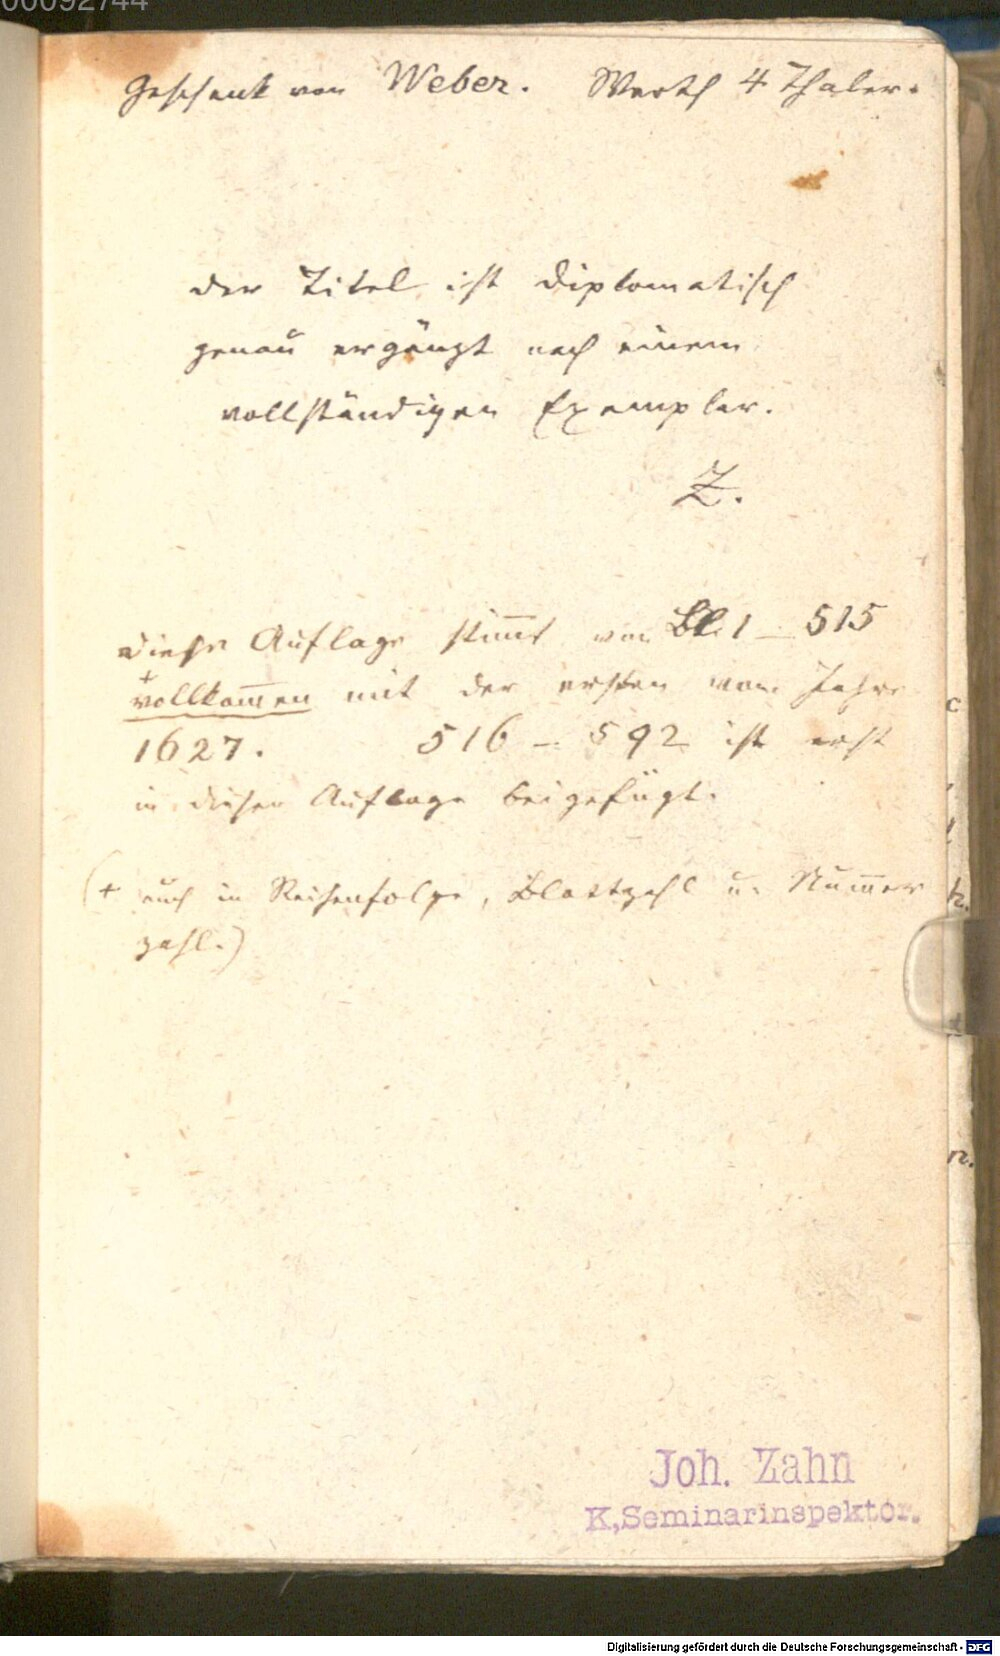 00092744
Geschenk von Weber. Werth 4 Thaler.
der Titel ist diplomatisch
genau ergänzt nach einem
vollständigen Exemplar.
Z.
diese Auflage stim̅t von Bl. 1 – 515
+
vollkom̅en mit der ersten vom Jahre
1627. 516 – 592 ist erst
in dieser Auflage beigefügt.
(+ auch in Reihenfolge, Blattzahl u. Num̅er
zahl.)
Joh. Zahn
K,Seminarinspektor.
Digitalisierung gefördert durch die Deutsche Forschungsgemeinschaft - DFG